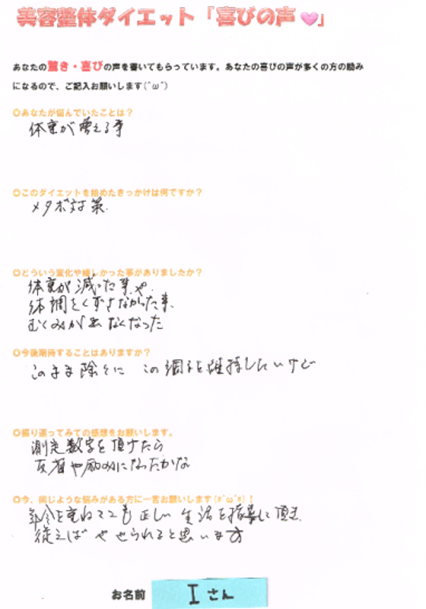 美容整体ダイエット「喜びの声💗」
あなたの驚き・喜びの声を書いてもらっています。あなたの喜びの声が多くの方の励み
になるので、ご記入お願いします(*'ω'*)
◎あなたが悩んでいたことは？
体重が増える事
◎このダイエットを始めたきっかけは何ですか？
メタボ対策.
◎どういう変化や嬉しかった事がありましたか？
体重が減った事や.
体調をくずさなかった事.
むくみが出なくなった
◎今後期待することはありますか？
このまま除々に この調子を維持したいけど
◎振り返ってみての感想をお願いします。
測定数字を頂けたら
反省や励みになったかな
◎今、同じような悩みがある方に一言お願いします(*'ω'*)！
年令を重ねても正しい生活を指導して頂き
従えば やせられると思います
お名前 Iさん